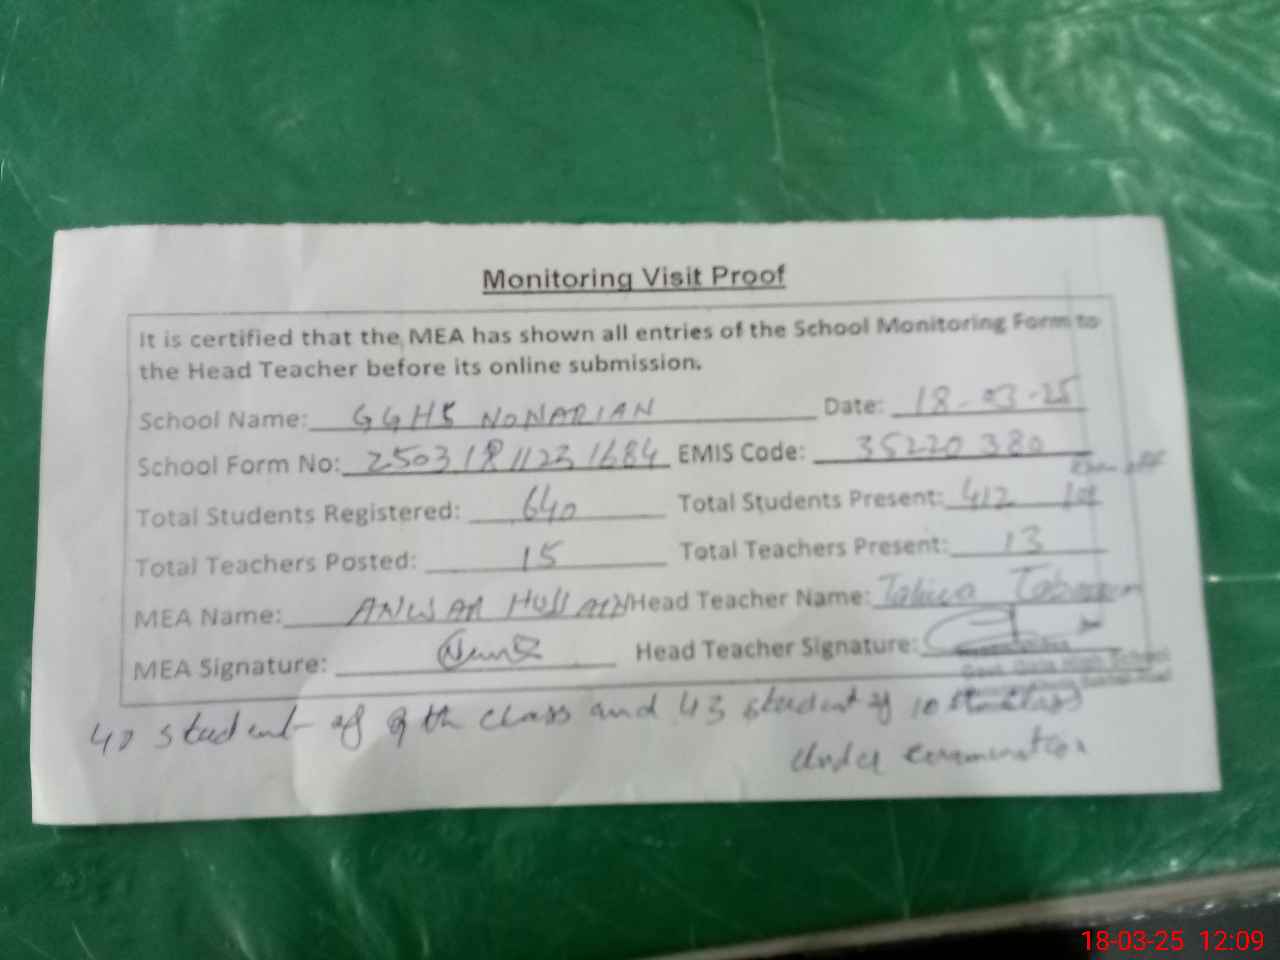 Monitoring Visit Proof
It is certified that the MEA has shown all entries of the School Monitoring Form to
the Head Teacher before its online submission.
School Name: GGHS NONARIAN Date: 18-03-25
School Form No: 25031811231684 EMIS Code: 35220380
Total Students Registered: 640 Total Students Present: 412
Total Teachers Posted: 15 Total Teachers Present: 13
MEA Name: ANWAR Head Teacher Name:
MEA Signature: Head Teacher Signature:
Govt. Girls High School
student of 9th class and 43 student of 10th class
under examination
18-03-25 12:09